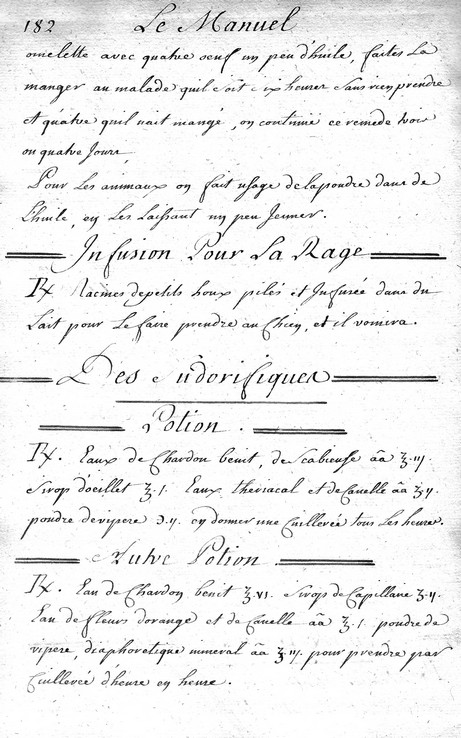 182 Le Manuel
omelette avec quatre oeuf un peu d'huile, faites La
manger au malade quil soit six heures sans rien prendre
et quatre quil nait mangé, on continue ce remede trois
ou quatre Jours,
Pour Les animaux on fait usage de la poudre dans de
L'huile, en Les Laissant un peu Jeuner.
Infusion Pour La Rage
℞ Racines de petits houx pilés et Infusée dans du
Lait pour Le faire prendre au Chien, et il vomira.
Des Sudorifiques
Potion.
℞. Eaux de Chardon benit, de Scabieuse āā ʒ.iij.
Sirop d'oeillet ʒ.j. Eaux theriacal et de Canelle āā ʒij
poudre de vipere ℈.ij. en donner une Cuillerée tous Les heures.
Autre Potion
℞. Eau de Chardon benit ʒ.vi. Sirop de Capillaire ʒ.ij.
Eau de fleurs d'orange et de Canelle āā ʒ.j. poudre de
vipere, diaphoretique mineral āā ʒ.iij. pour prendre par
Cuillerée d'heure en heure.